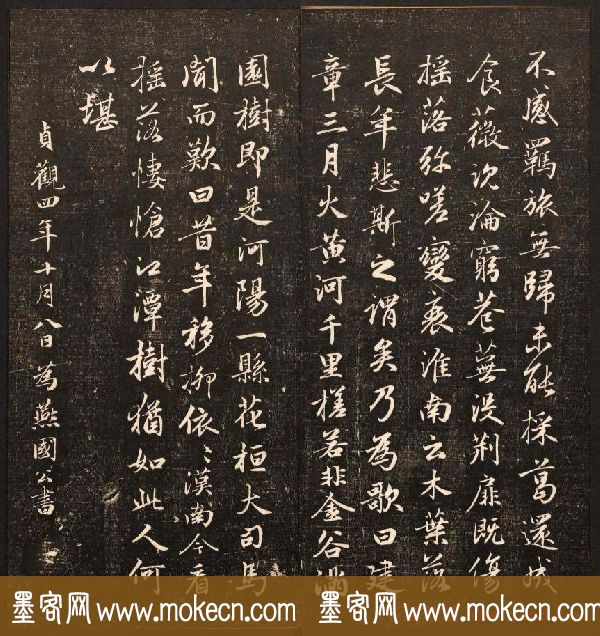 不感羈旅無歸未能採葛還成
食薇沉淪窮巷蕪没荆扉既傷
搖落弥嗟變衰淮南云木葉落
長年悲斯之謂矣乃為歌曰建
章三月火黄河千里槎若非金谷滿
園樹即是河陽一縣花桓大司馬
聞而歎曰昔年移柳依〻漢南今看
搖落悽愴江潭樹猶如此人何
以堪
貞觀四年十月八日為燕國公書
墨客网 www.mokecn.com
墨客网 www.mokecn.com